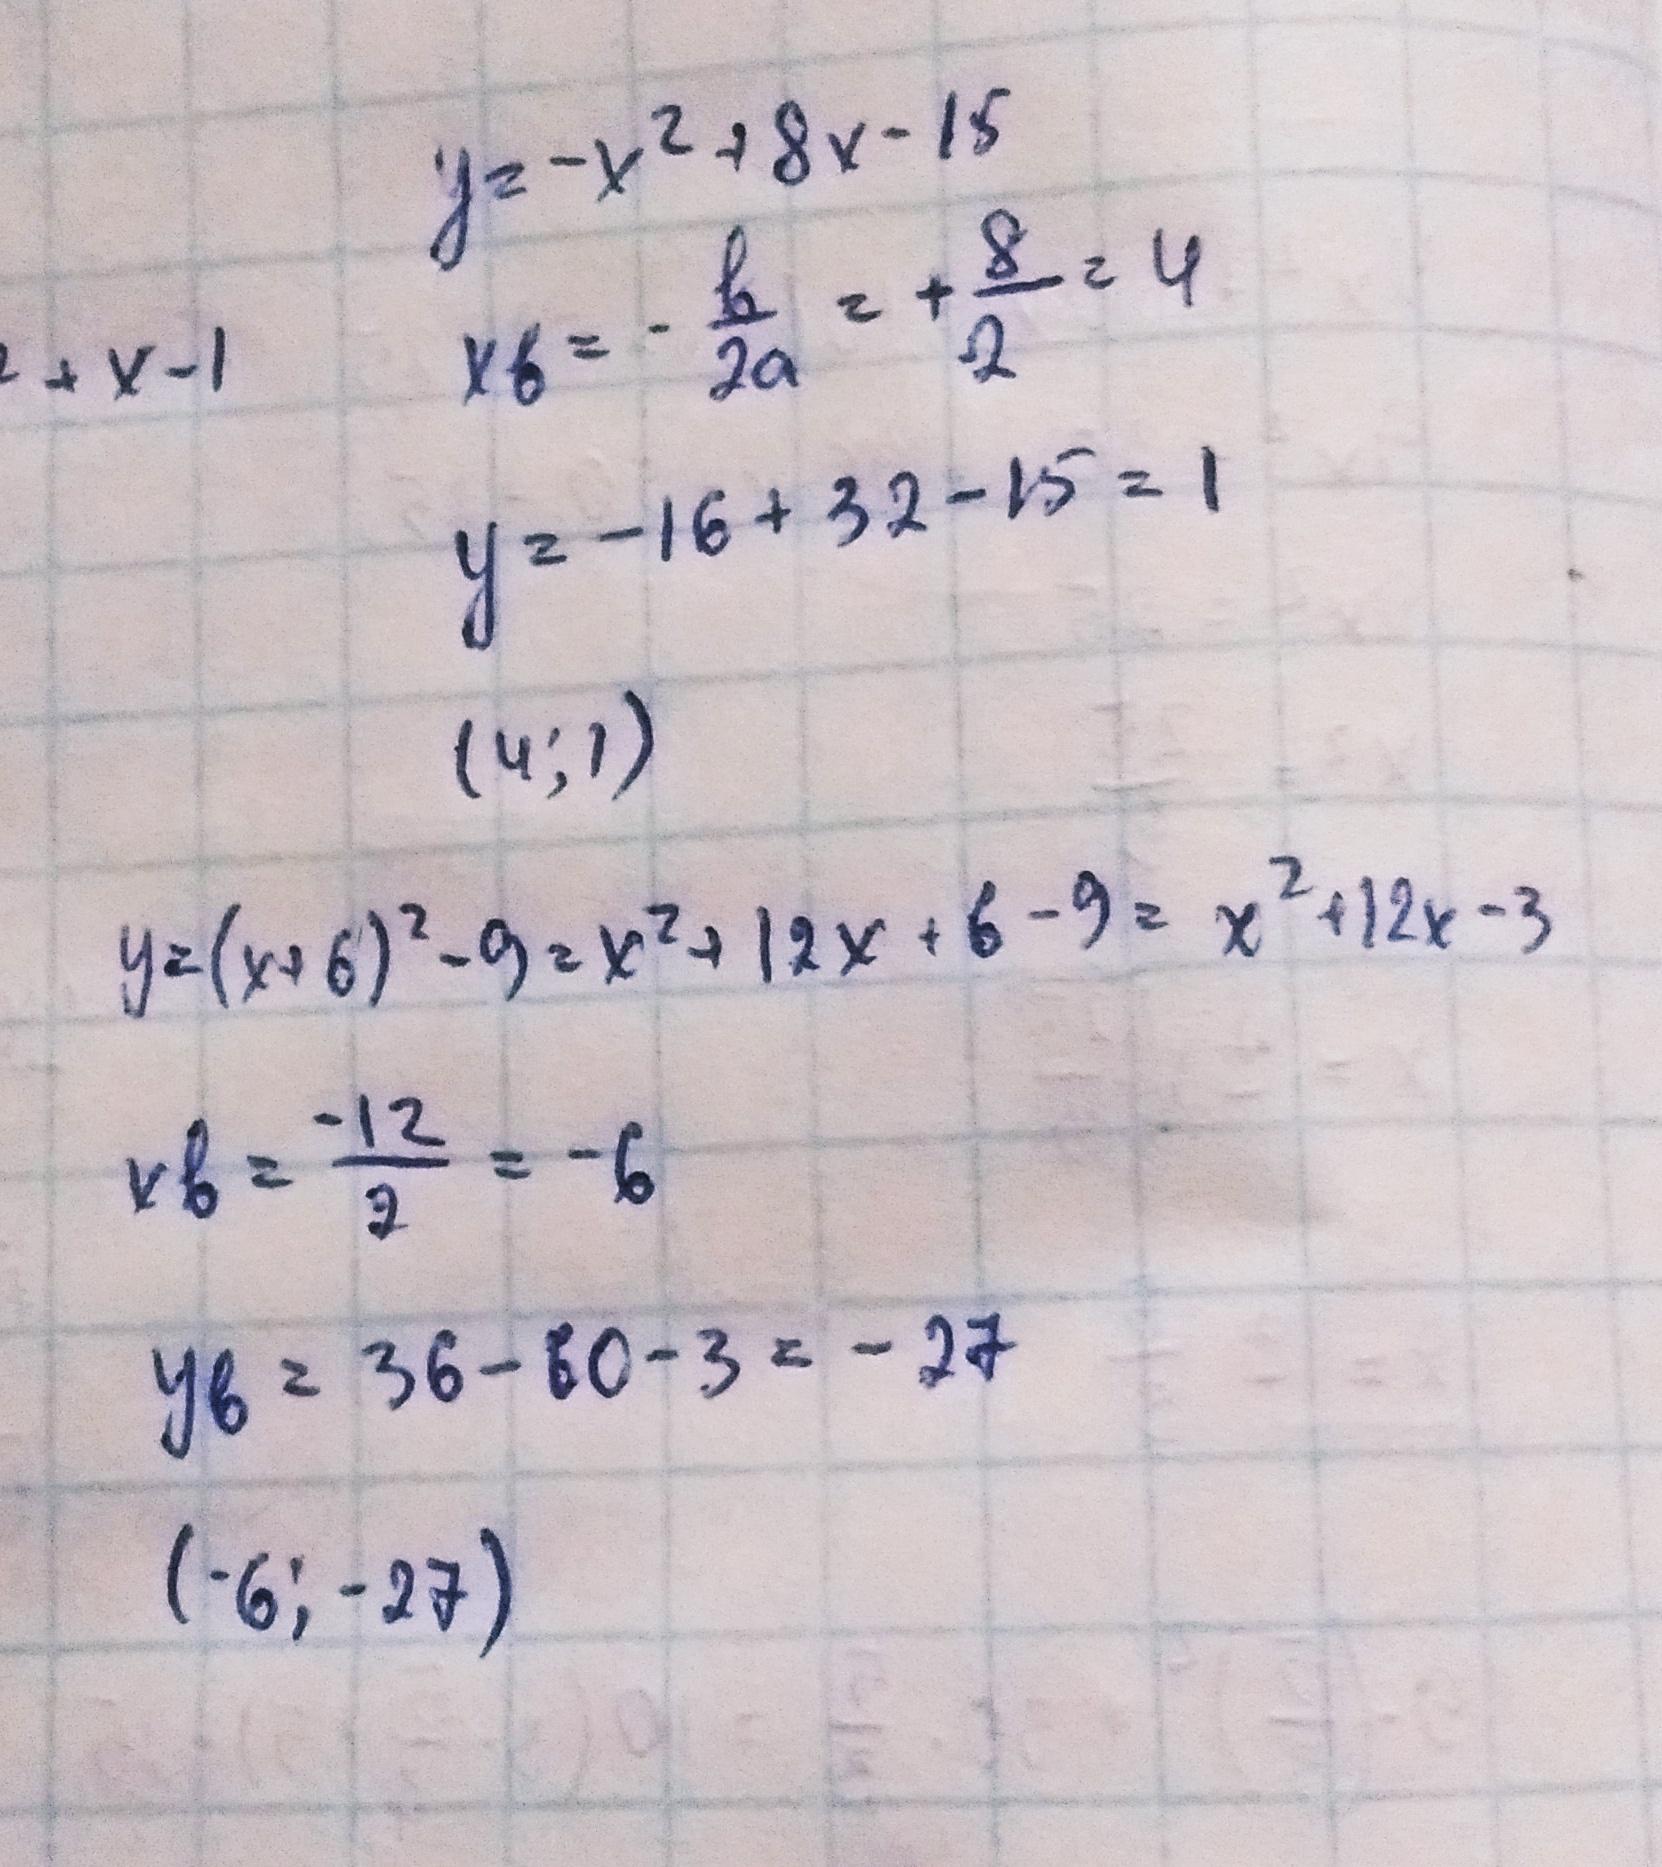 y = -x² + 8x - 15
xв = - b/2a = + 8/2 = 4
² + x - 1
y = -16 + 32 - 15 = 1
(4; 1)
y = (x + 6)² - 9 = x² + 12x + 6 - 9 = x² + 12x - 3
xв = -12/2 = -6
yв = 36 - 60 - 3 = -27
(-6; -27)